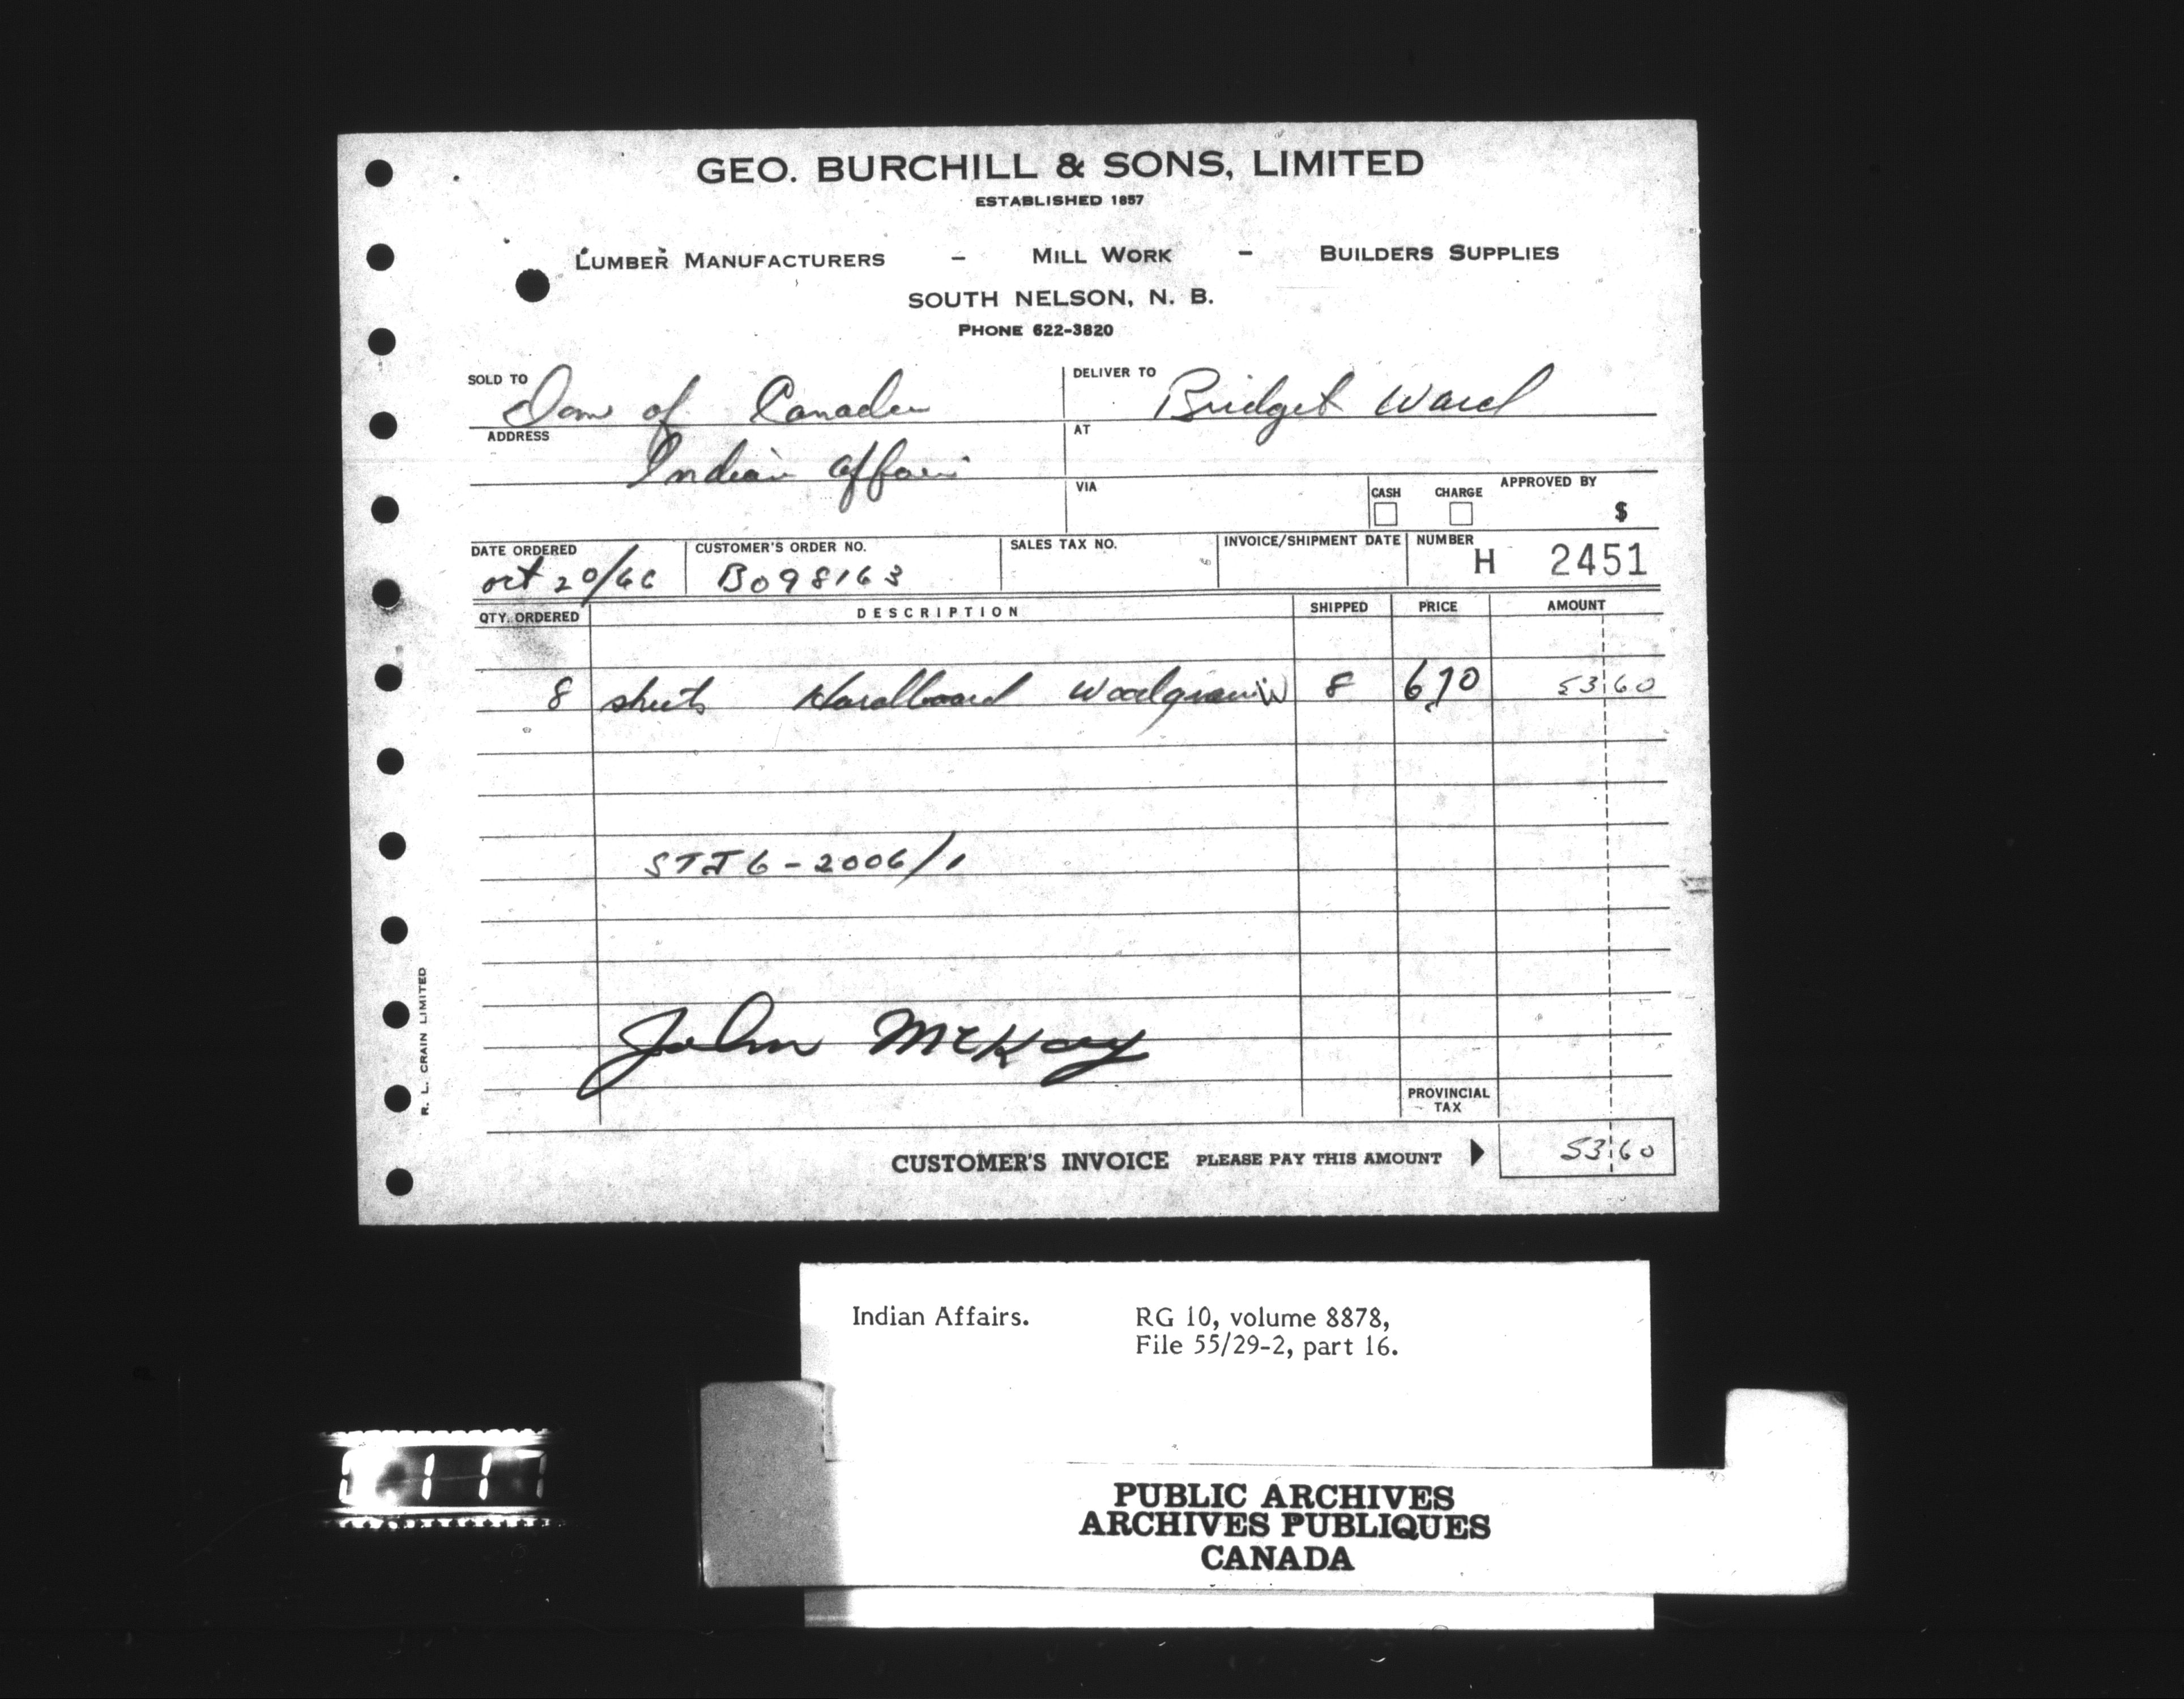 GEO. BURCHILL & SONS, LIMITED
ESTABLISHED 1857
LUMBER MANUFACTURERS - MILL WORK - BUILDERS SUPPLIES
SOUTH NELSON, N. B.
PHONE 622-3820
SOLD TO Dom of Canada DELIVER TO Bridget Ward
ADDRESS Indian Affairs AT
VIA CASH CHARGE APPROVED BY $
DATE ORDERED CUSTOMER'S ORDER NO. SALES TAX NO. INVOICE/SHIPMENT DATE NUMBER
oct 20/66 B098163 H 2451
QTY. ORDERED DESCRIPTION SHIPPED PRICE AMOUNT
8 sheets Hardboard Woodgrain 8 6.70 53 60
STJ6-2006/1
John McKay
R. L. CRAIN LIMITED
PROVINCIAL
TAX
CUSTOMER'S INVOICE PLEASE PAY THIS AMOUNT 53 60
Indian Affairs. RG 10, volume 8878,
File 55/29-2, part 16.
PUBLIC ARCHIVES
ARCHIVES PUBLIQUES
CANADA